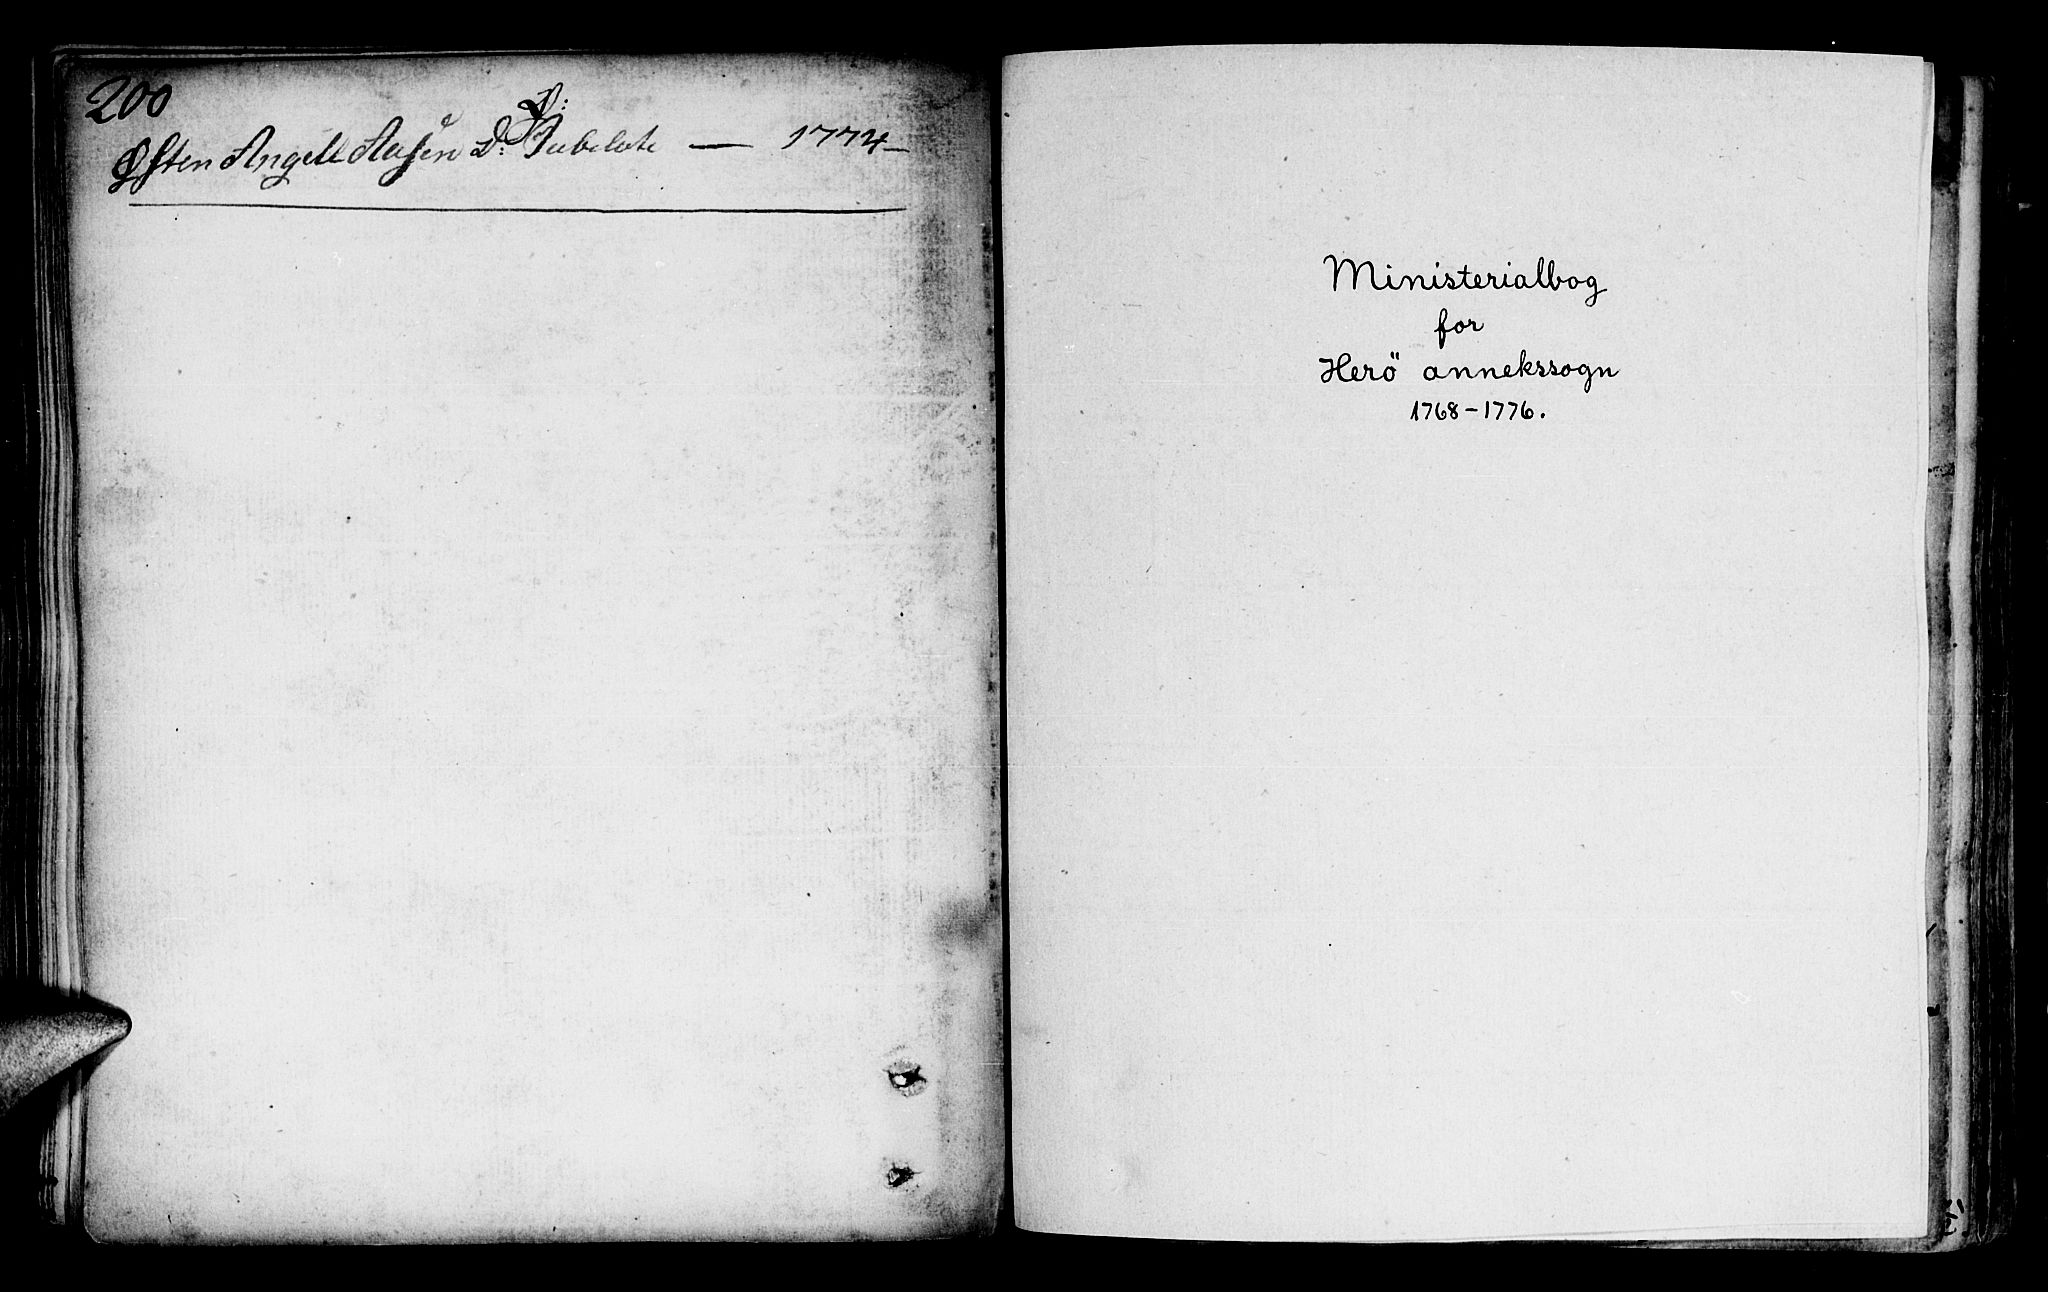 200
D:
Østen Angell Aasen D: Jubelate — 1774 —
Ministerialbog
for
Herö annekssogn
1768-1776.